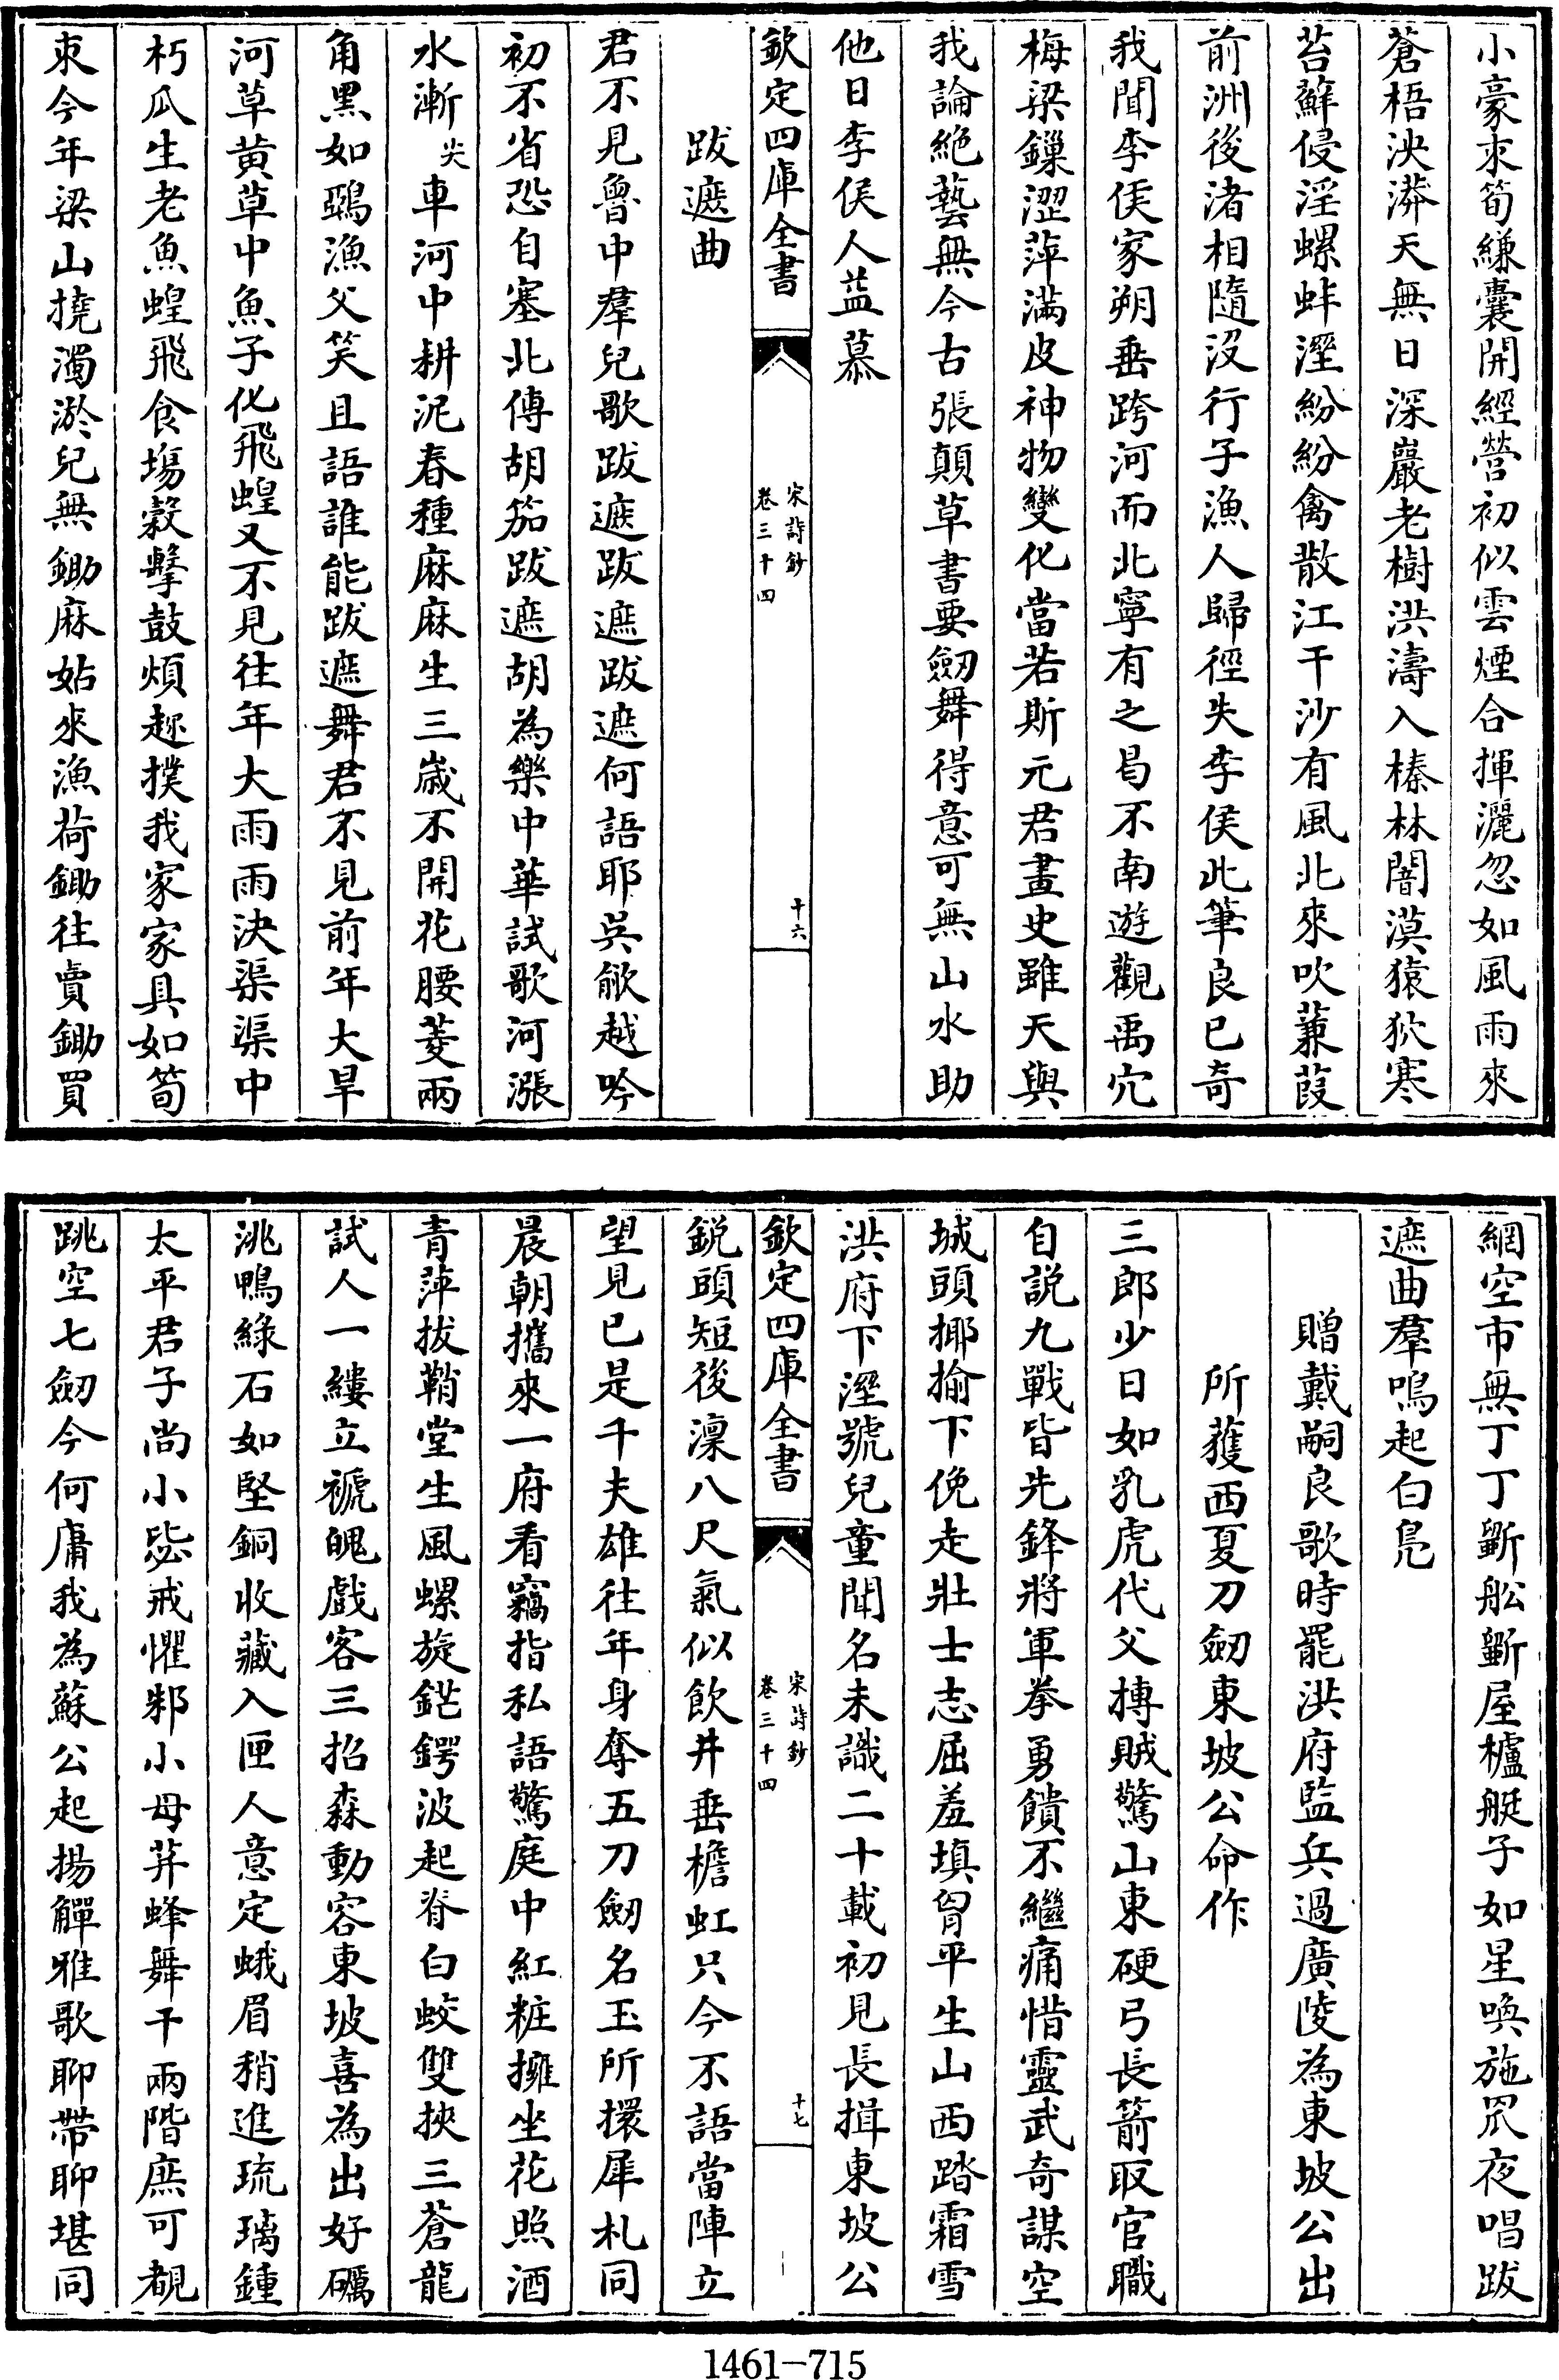 小豪束筍縑囊開經營初似雲煙合揮灑忽如風雨來
蒼梧泱漭天無日深巖老樹洪濤入榛林闇漠猿狖寒
苔蘚侵淫螺蚌溼紛紛禽散江干沙有風北來吹蒹葭
前洲後渚相隨沒行子漁人歸徑失李侯此筆良已奇
我聞李侯家朔垂跨河而北寧有之曷不南遊觀禹穴
梅梁鏁澀萍滿皮神物變化當若斯元君畫史雖天與
我論絶藝無今古張顛草書要劒舞得意可無山水助
他日李侯人益慕
欽定四庫全書
宋詩鈔
卷三十四
十六
跋遮曲
君不見魯中羣兒歌跋遮跋遮跋遮何語耶吳歈越吟
初不省恐自塞北傳胡笳跋遮胡為樂中華試歌河漲
水漸尖車河中耕泥春種麻麻生三嵗不開花腰菱兩
角黑如鵶漁父笑且語誰能跋遮舞君不見前年大旱
河草黄草中魚子化飛蝗又不見往年大雨雨決渠渠中
朽瓜生老魚蝗飛食塲穀擊鼓煩趂撲我家家具如筍
束今年梁山撓濁淤兒無鋤麻姑來漁荷鋤往賣鋤買
網空市無丁丁斵舩斵屋櫨艇子如星喚施罛夜唱跋
遮曲羣鳴起白鳬
贈戴嗣良歌時罷洪府監兵過廣陵為東坡公出
所獲西夏刀劒東坡公命作
三郎少日如乳虎代父摶賊驚山東硬弓長箭取官職
自説九戰皆先鋒將軍拳勇饋不繼痛惜靈武奇謀空
城頭揶揄下俛走壯士志屈羞填胷平生山西踏霜雪
洪府下溼號兒童聞名未識二十載初見長揖東坡公
欽定四庫全書
宋詩鈔
卷三十四
十七
鋭頭短後凜八尺氣似飲井垂檐虹只今不語當陣立
望見已是千夫雄往年身奪五刀劒名玉所擐犀札同
晨朝攜來一府看竊指私語驚庭中紅粧擁坐花照酒
青萍拔鞘堂生風螺旋鋩鍔波起脊白蛟雙挾三蒼龍
試人一縷立褫魄戲客三招森動容東坡喜為出好礪
洮鴨綠石如堅銅收藏入匣人意定蛾眉稍進琉璃鍾
太平君子尚小毖戒懼邾小毋荓蜂舞干兩階庶可覩
跳空七劒今何庸我為蘇公起揚觶雅歌聊帶聊堪同
1461—715